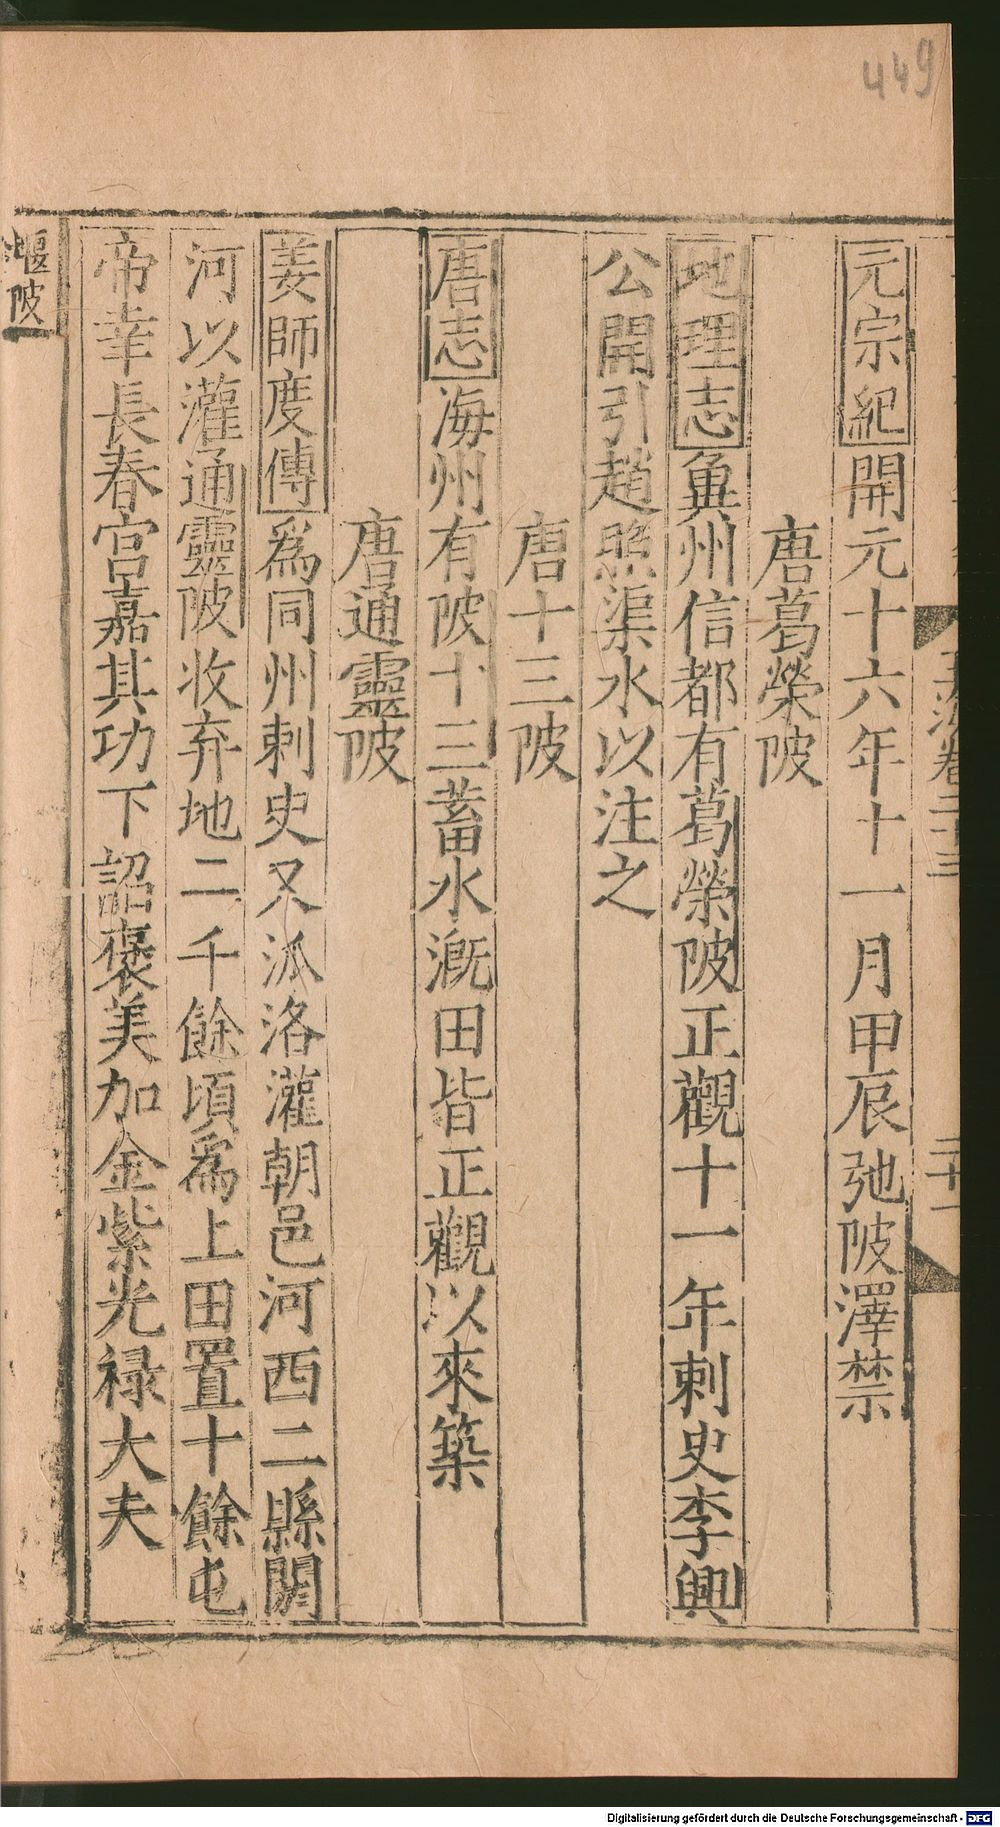 449
元宗紀開元十六年十一月甲辰弛陂澤禁
唐葛榮陂
地理志冀州信都有葛榮陂正觀十一年刺史李興
公開引趙照渠水以注之
唐十三陂
唐志海州有陂十三蓄水漑田皆正觀以來築
唐通靈陂
姜師度傳爲同州刺史又派洛灌朝邑河西二縣閼
河以灌通靈陂收弃地二千餘頃爲上田置十餘屯
帝幸長春宮嘉其功下詔褒美加金紫光禄大夫
堰陂
卷二十三
二十一
Digitalisierung gefördert durch die Deutsche Forschungsgemeinschaft - DFG